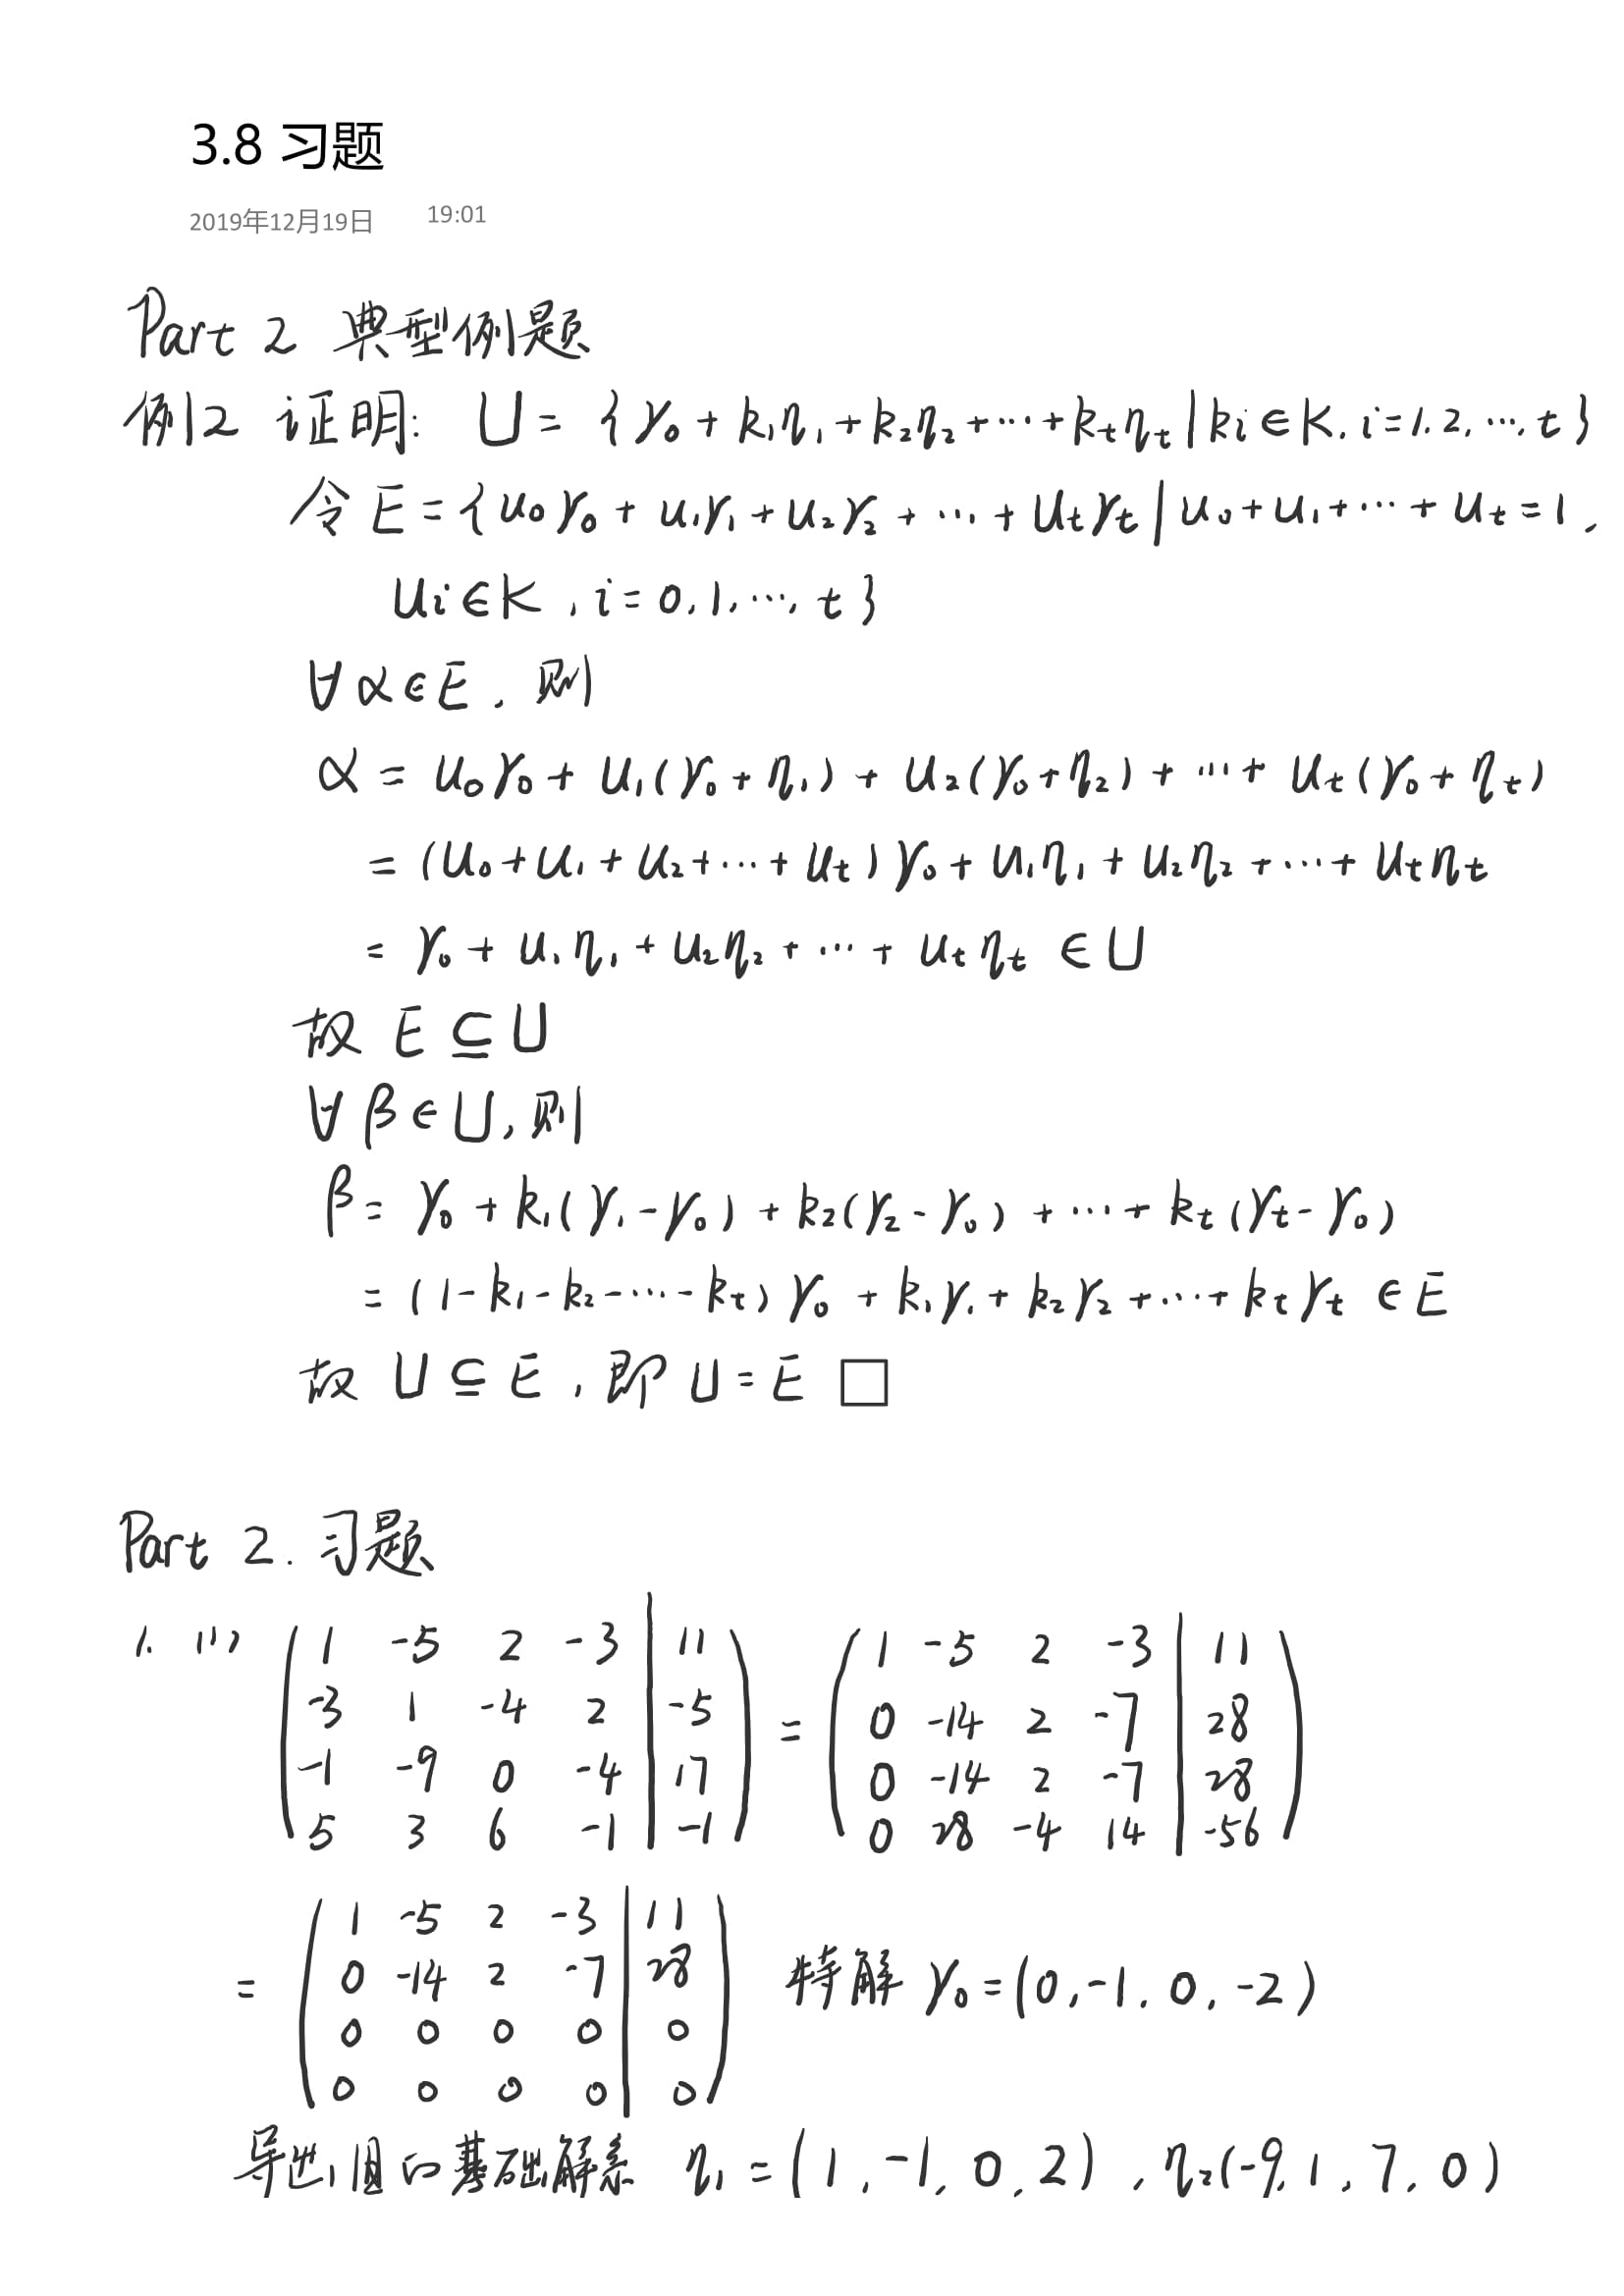 3.8 习题
2019年12月19日 19:01
Part 2 典型例题
例2 证明: U = {γ₀ + k₁η₁ + k₂η₂ + ⋯ + kₜηₜ | kᵢ ∈ K, i = 1, 2, ⋯, t}
令 E = {u₀γ₀ + u₁γ₁ + u₂γ₂ + ⋯ + uₜγₜ | u₀ + u₁ + ⋯ + uₜ = 1,
uᵢ ∈ K, i = 0, 1, ⋯, t}
∀ α ∈ E, 则
α = u₀γ₀ + u₁(γ₀ + η₁) + u₂(γ₀ + η₂) + ⋯ + uₜ(γ₀ + ηₜ)
= (u₀ + u₁ + u₂ + ⋯ + uₜ)γ₀ + u₁η₁ + u₂η₂ + ⋯ + uₜηₜ
= γ₀ + u₁η₁ + u₂η₂ + ⋯ + uₜηₜ ∈ U
故 E ⊆ U
∀ β ∈ U, 则
β = γ₀ + k₁(γ₁ - γ₀) + k₂(γ₂ - γ₀) + ⋯ + kₜ(γₜ - γ₀)
= (1 - k₁ - k₂ - ⋯ - kₜ)γ₀ + k₁γ₁ + k₂γ₂ + ⋯ + kₜγₜ ∈ E
故 U ⊆ E, 即 U = E □
Part 2. 习题
1. (1) ( 1 -5 2 -3 | 11 ) = ( 1 -5 2 -3 | 11 )
-3 1 -4 2 | -5 0 -14 2 -7 | 28
-1 -9 0 -4 | 17 0 -14 2 -7 | 28
5 3 6 -1 | -1 0 28 -4 14 | -56
( 1 -5 2 -3 | 11 )
= 0 -14 2 -7 | 28 特解 γ₀ = (0, -1, 0, -2)
0 0 0 0 | 0
0 0 0 0 | 0
导出组的基础解系 η₁ = (1, -1, 0, 2), η₂(-9, 1, 7, 0)